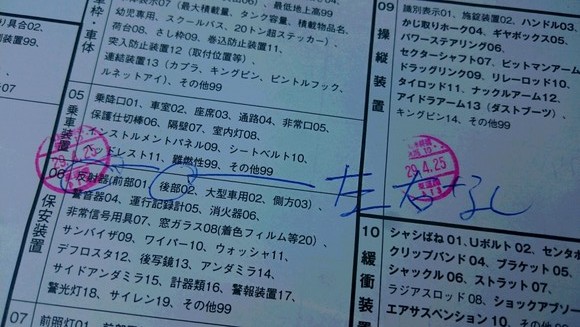 り具合02、
制装置99、
07
車枠・車体
表示07（最大積載量、タンク容量、積載物品名、
幼児専用、スクールバス、20トン超ステッカー）、
荷台08、さし枠09、巻込防止装置11、
突入防止装置12（取付位置等）、
連結装置13（カプラ、キングピン、ピントルフック、
ルネットアイ）、その他99
最低地上高99
05
乗車装置
乗降口01、車室02、座席03、通路04、非常口05、
保護仕切棒06、隔壁07、室内灯08、
インストルメントパネル09、シートベルト10、
ヘッドレスト11、難燃性99、その他99
29.4.25
06
保安装置
反射器(前部01、後部02、大型車用02、側方03)、
警音器04、運行記録計05、消火器06、
非常信号用具07、窓ガラス08(着色フィルム等20)、
サンバイザ09、ワイパー10、ウォッシャ11、
デフロスタ12、後写鏡13、アンダミラ14、
サイドアンダミラ15、計器類16、警報装置17、
警光灯18、サイレン19、その他99
左右なし
07
前照灯01、
09
操縦装置
識別表示01、施錠装置02、ハンドル03、
かじ取りホーク04、ギヤボックス05、
パワーステアリング06、
セクターシャフト07、ピットマンアーム
ドラッグリンク09、リレーロッド10、
タイロッド11、ナックルアーム12、
アイドラアーム13（ダストブーツ）、
キングピン14、その他99
29.4.25
10
緩衝装
シャシばね01、Uボルト02、センタボ
クリップバンド04、ブラケット05、
シャックル06、ストラット07、
ラジアスロッド08、ショックアブソー
エアサスペンション10、その他99